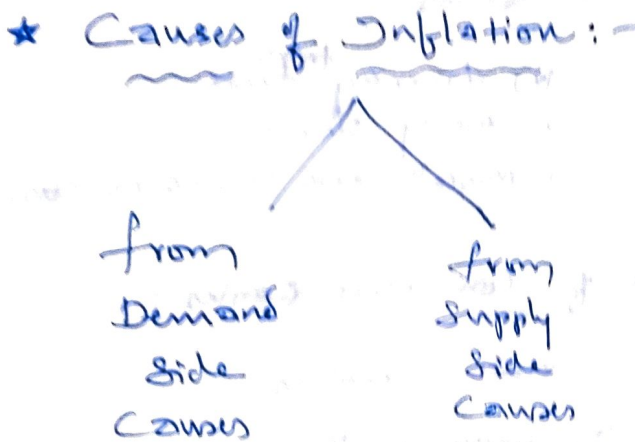 ★ Causes of Inflation:-
from
Demand
side
Causes
from
supply
side
Causes